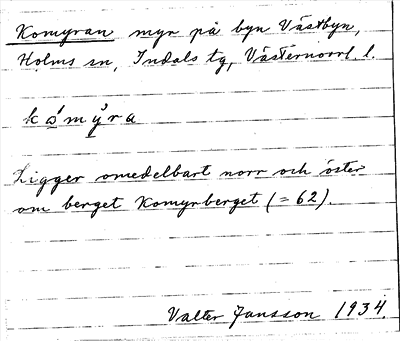 Komyran myr på byn Västbyn,
Holms sn, Indals tg, Västernorrl. l.
ko̱´mỳ̱ra
Ligger omedelbart norr och öster
om berget Komyrberget (= 62).
Valter Jansson 1934.